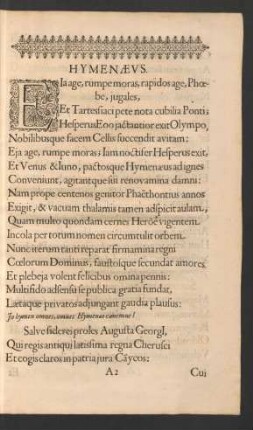 HYMENÆVS.
Eia age, rumpe moras, rapidos age, Phœ-
be, jugales,
Et Tartessiaci pete nota cubilia Ponti;
Hesperus Eoo jactantior exit Olympo,
Nobilibusque facem Cellis succendit avitam:
Eja age, rumpe moras; Iam noctifer Hesperus exit,
Et Venus & Iuno, pactosque Hymenæus ad ignes
Conveniunt, agitantque sui renovamina damni:
Nam prope centenos genitor Phaëthontius annos
Exigit, & vacuam thalamis tamen adspicit aulam,
Quam multo quondam cernes Heroë vigentem.
Incola per totum nomen circumtulit orbem.
Nunc iterum tanti reparat firmamina regni
Cœlorum Dominus, faustosque secundat amores
Et plebeja volent felicibus omina pennis:
Multifido adsensu se publica gratia fundat,
Lætaque privatos adjungant gaudia plausus:
Jo hymen omnes, omnes Hymenæ canamus!
Salve sidereï proles Augusta Georgî,
Qui regis antiqui latissima regna Cherusci
Et cogis claros in patria jura Cäycos:
A 2
Cui